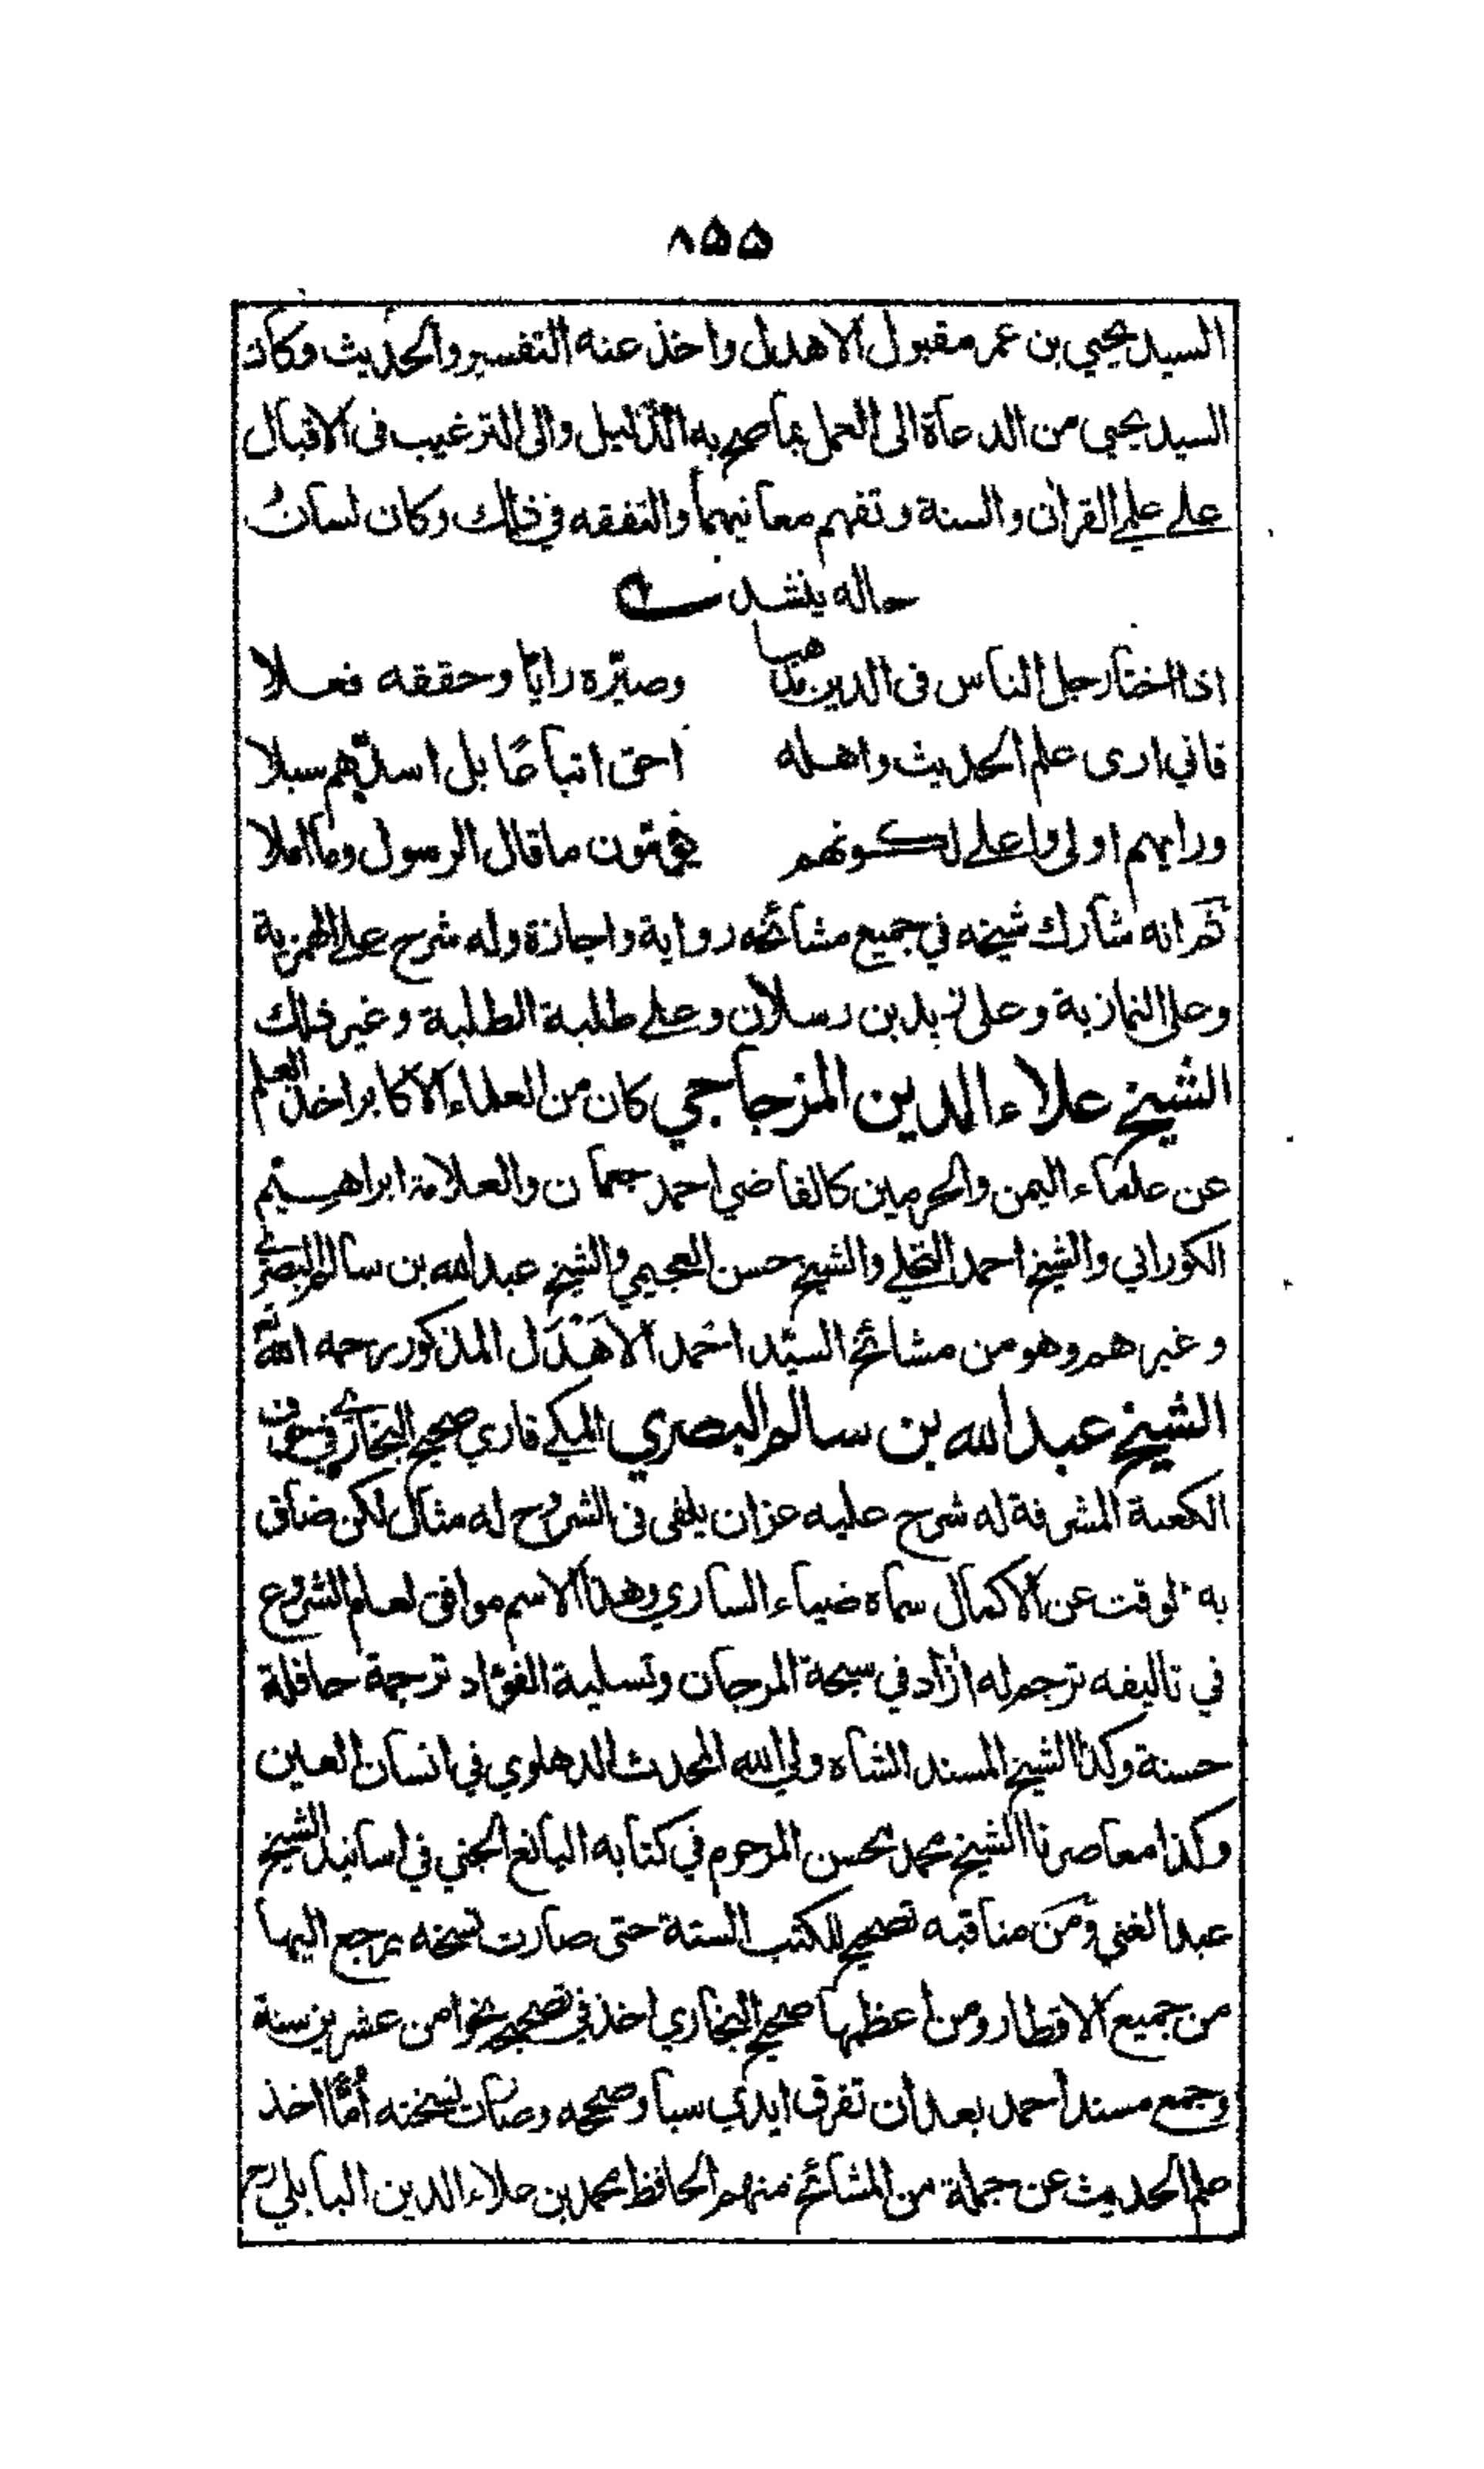 ٨٥٥
السيد يحيي بن عمر مقبول الاهدل واخذ عنه التفسير والحديث وكان
السيد يحيى من الدعاة الى العمل بما صح به الدليل والى الترغيب فى الاقبال
على علم القران والسنة وتفهم معانيهما والتفقه في ذلك وكان لسان
حاله ينشد
اذا اختار جل الناس فى الدين مذهبا وصيّره رايًا وحققه فعلا
فاني ارى علم الحديث واهله احق اتباعًا بل اسدّهم سبلا
ورايهم اولى واعلى لكونهم يؤمّون ما قال الرسول وما املا
ثم انه شارك شيخه في جميع مشائخه رواية واجازة وله شرح على الهمزية
وعلى وعلى زبد بن رسلان وعلى طلبة الطلبة وغير ذلك
الشيخ علاء الدين المزجاجي كان من العلماء الاكابر اخذ العلم
عن علماء اليمن والحرمين كالقاضي احمد جمان والعلامة ابراهيم
الكوراني والشيخ احمد النخلي والشيخ حسن العجيمي والشيخ عبد الله بن سالم البصري
وغيرهم وهو من مشائخ السيّد احمد الاهْدَل المذكور رحمه الله
الشيخ عبد الله بن سالم البصري المكي قاري صحيح البخاري في جوف
الكعبة المشرفة له شرح عليه عزان يلفى فى الشروح له مثال لكن ضاق
به الوقت عن الاكمال سماه ضياء الساري وهذا الاسم موافق لعام الشروع
في تاليفه ترجم له ازاد في سبحة المرجان وتسلية الفؤاد ترجمة حافلة
حسنة وكذا الشيخ المسند الشاه ولي الله المحدث الدهلوي في انسان العين
وكذا معاصرنا الشيخ محمد محسن المرحوم في كتابه اليانع الجني في اسانيد الشيخ
عبد الغني ومن مناقبه تصحيح الكتب الستة حتى صارت نسخته يرجع اليها
من جميع الاقطار ومن اعظمها صحيح البخاري اخذ في تصحيحه نحوا من عشرين سنة
وجمع مسند احمد بعد ان تفرق ايدي سبا وصححه وصارت نسخته أُمًّا اخذ
علم الحديث عن جملة من المشائخ منهم الحافظ محمد بن علاء الدين البابلي رح